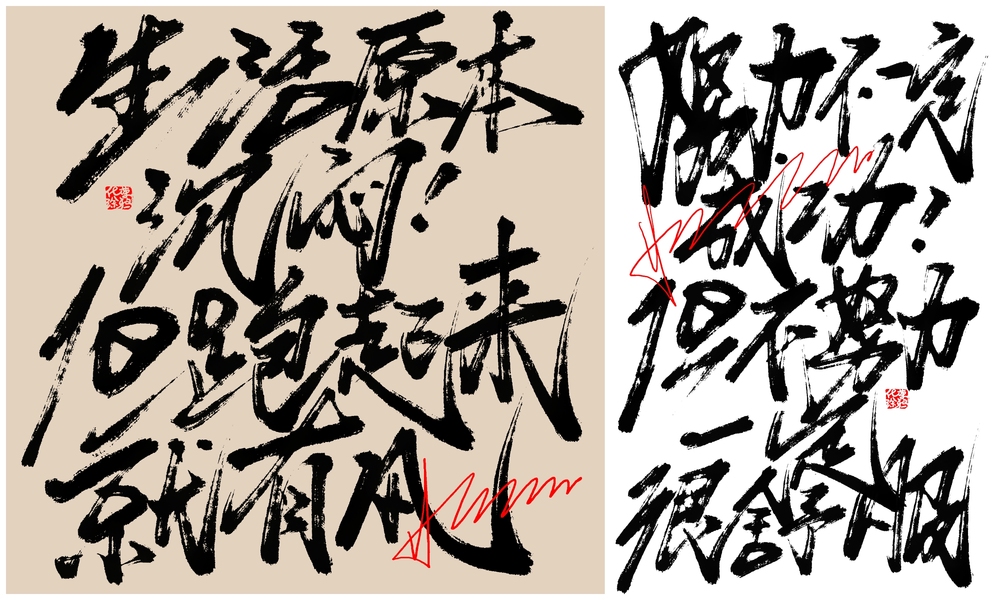 生活原本
沉闷！
但跑起来
就有风
努力不一定
成功！
但不努力
一定
很舒服